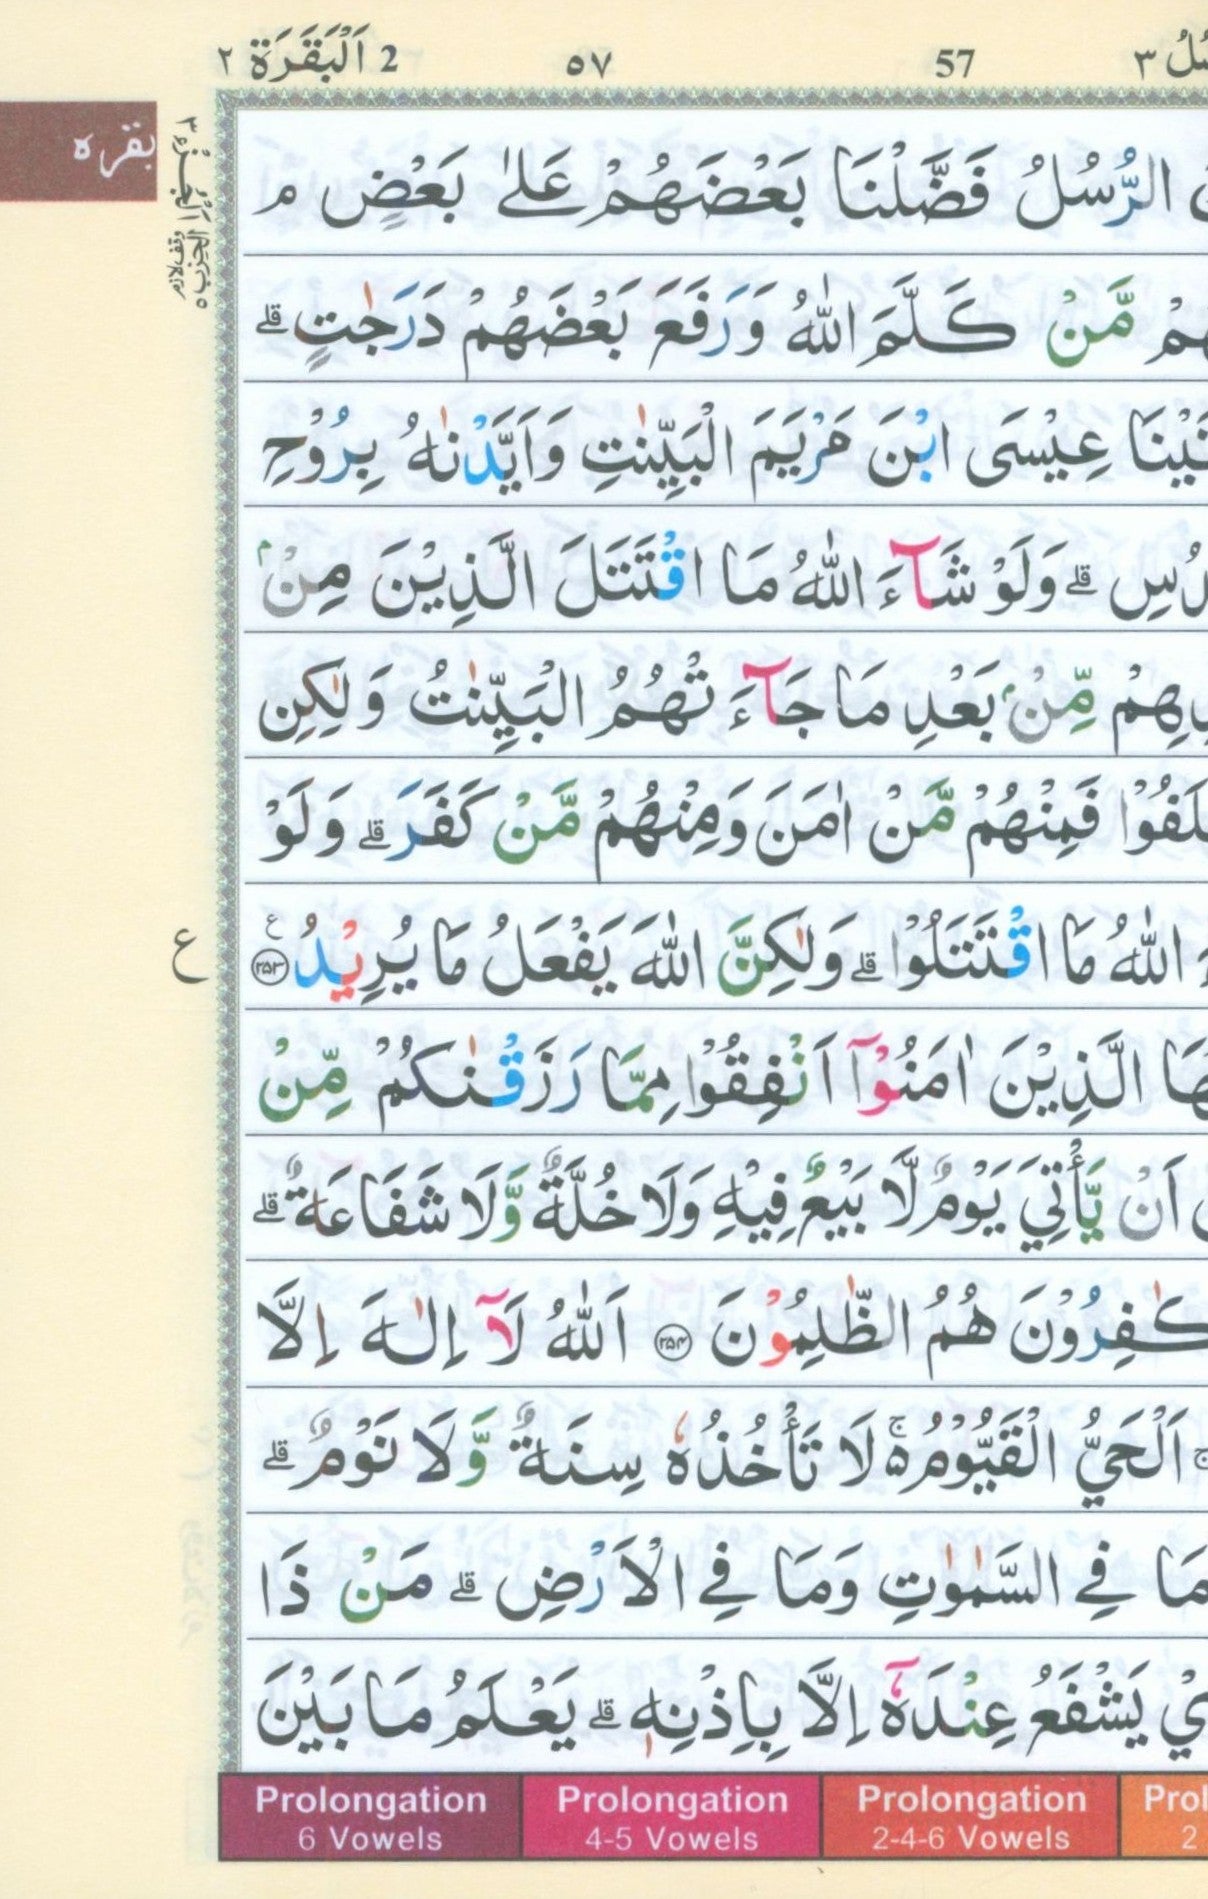 2 اَلْبَقَرَة ٢
٥٧
57
٣
بقره
وقف لازم
الرُّسُلُ فَضَّلْنَا بَعْضَهُمْ عَلٰى بَعْضٍ ۘ
مَّنْ كَلَّمَ اللّٰهُ وَرَفَعَ بَعْضَهُمْ دَرَجٰتٍ ؕ
عِيْسَى ابْنَ مَرْيَمَ الْبَيِّنٰتِ وَاَيَّدْنٰهُ بِرُوْحِ
ۗ وَلَوْ شَآءَ اللّٰهُ مَا اقْتَتَلَ الَّذِيْنَ مِنْۢ
مِّنْۢ بَعْدِ مَا جَآءَتْهُمُ الْبَيِّنٰتُ وَلٰكِنِ
فَمِنْهُمْ مَّنْ اٰمَنَ وَمِنْهُمْ مَّنْ كَفَرَ ۗ وَلَوْ
اللّٰهُ مَا اقْتَتَلُوْا ۗ وَلٰكِنَّ اللّٰهَ يَفْعَلُ مَا يُرِيْدُ ۝٢٥٣ ع
ع
الَّذِيْنَ اٰمَنُوْۤا اَنْفِقُوْا مِمَّا رَزَقْنٰكُمْ مِّنْ
اَنْ يَّأْتِيَ يَوْمٌ لَّا بَيْعٌ فِيْهِ وَلَا خُلَّةٌ وَّلَا شَفَاعَةٌ ۗ
هُمُ الظّٰلِمُوْنَ ۝٢٥٤ اَللّٰهُ لَاۤ اِلٰهَ اِلَّا
اَلْحَيُّ الْقَيُّوْمُ ۚ۬ لَا تَأْخُذُهٗ سِنَةٌ وَّلَا نَوْمٌ ۗ
مَا فِي السَّمٰوٰتِ وَمَا فِي الْاَرْضِ ۗ مَنْ ذَا
يَشْفَعُ عِنْدَهٗۤ اِلَّا بِاِذْنِهٖ ۗ يَعْلَمُ مَا بَيْنَ
Prolongation Prolongation Prolongation
6 Vowels 4-5 Vowels 2-4-6 Vowels 2